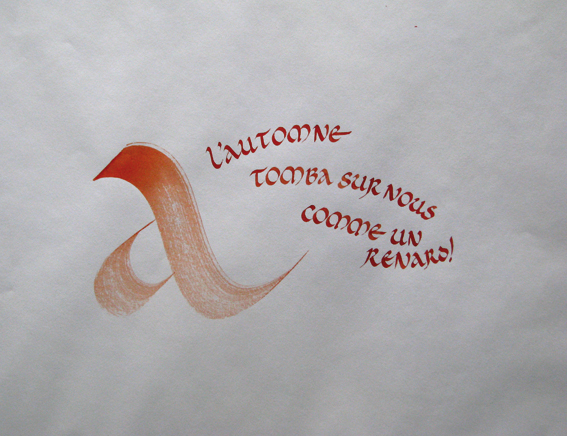 a
L'AUTOMNE
TOMBA SUR NOUS
COMME UN
RENARD!